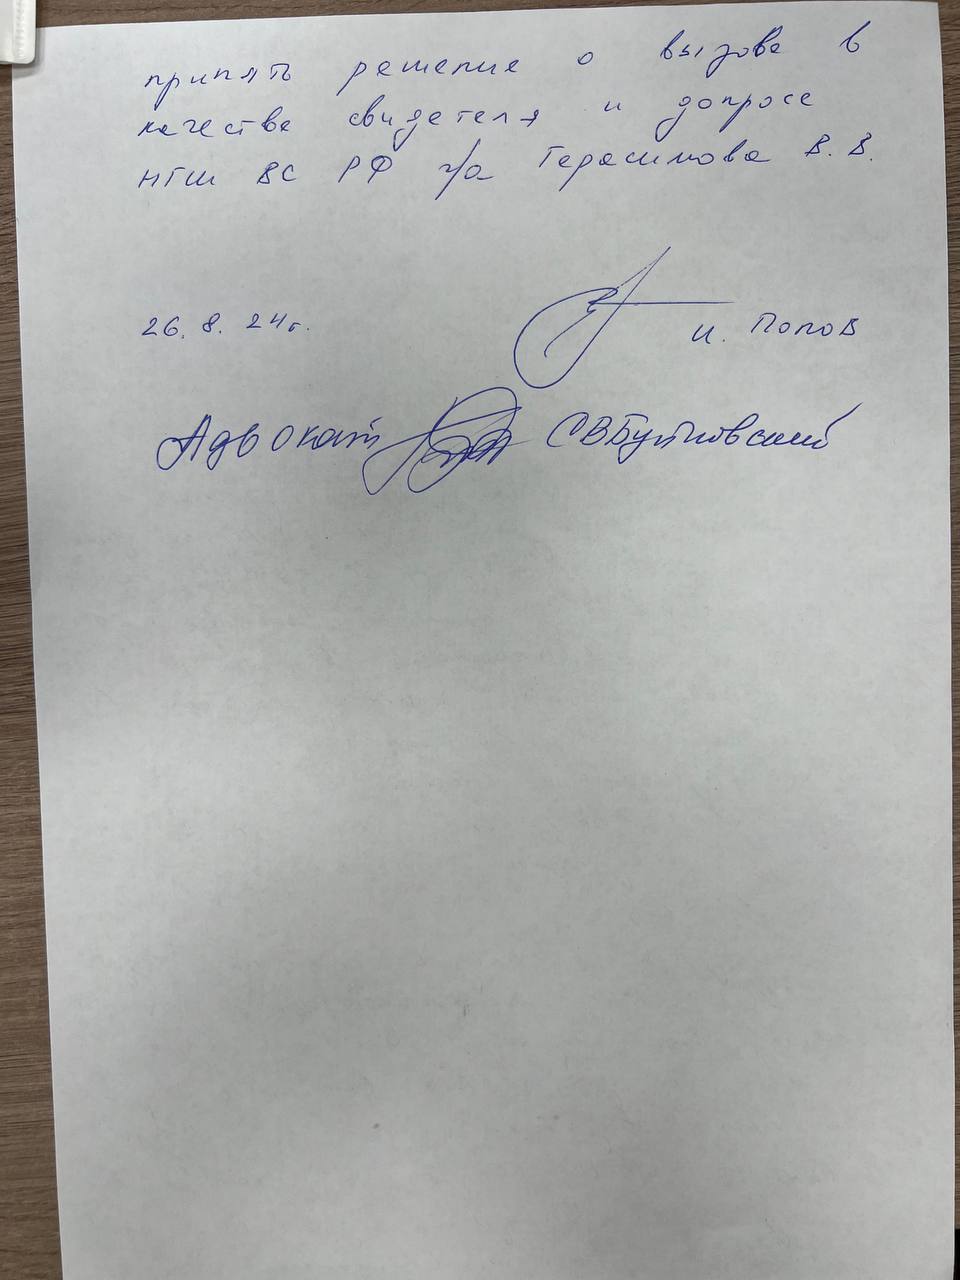 принять решение о вызове в
качестве свидетеля и допросе
НГШ ВС РФ г/а Герасимова В. В.
26. 8. 24г.
И. Попов
Адвокат С В Бутковский